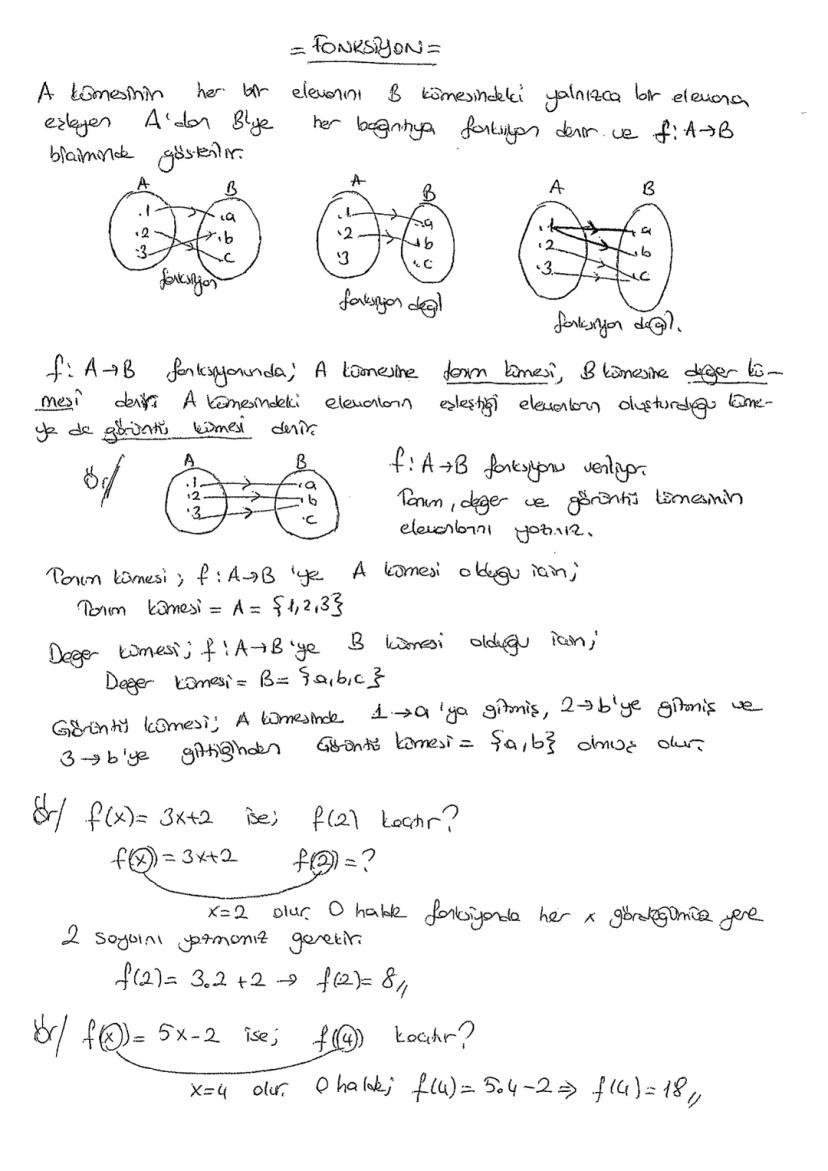 = FONKSİYON =
A kümesinin her bir elemanını B kümesindeki yalnızca bir elemana
eşleyen A'dan B'ye her bağıntıya fonksiyon denir ve f: A→B
biçiminde gösterilir.
A B A B A B
.1 .a .1 .a .1 .a
.2 .b .2 .b .2 .b
.3 .c .3 .c .3 .c
fonksiyon fonksiyon değil fonksiyon değil.
f: A→B fonksiyonunda; A kümesine tanım kümesi, B kümesine değer kü-
mesi denir. A kümesindeki elemanların eşleştiği elemanların oluşturduğu küme-
ye de görüntü kümesi denir.
ör/ A B f: A→B fonksiyonu veriliyor.
.1 .a Tanım, değer ve görüntü kümesinin
.2 .b elemanlarını yazınız.
.3 .c
Tanım kümesi; f: A→B 'ye A kümesi olduğu için;
Tanım kümesi = A = {1,2,3}
Değer kümesi; f: A→B 'ye B kümesi olduğu için;
Değer kümesi = B = {a,b,c}
Görüntü kümesi; A kümesinde 1→a 'ya gitmiş, 2→b'ye gitmiş ve
3→b'ye gittiğinden Görüntü kümesi = {a,b} olmuş olur.
ör/ f(x)= 3x+2 ise; f(2) kaçtır?
f(x) = 3x+2 f(2) = ?
x=2 olur. O halde fonksiyonda her x gördüğümüz yere
2 sayısını yazmamız gerekir.
f(2)= 3.2+2 → f(2)= 8,,
ör/ f(x)= 5x-2 ise; f(4) kaçtır?
x=4 olur. O halde; f(4)= 5.4-2 ⇒ f(4)=18,,